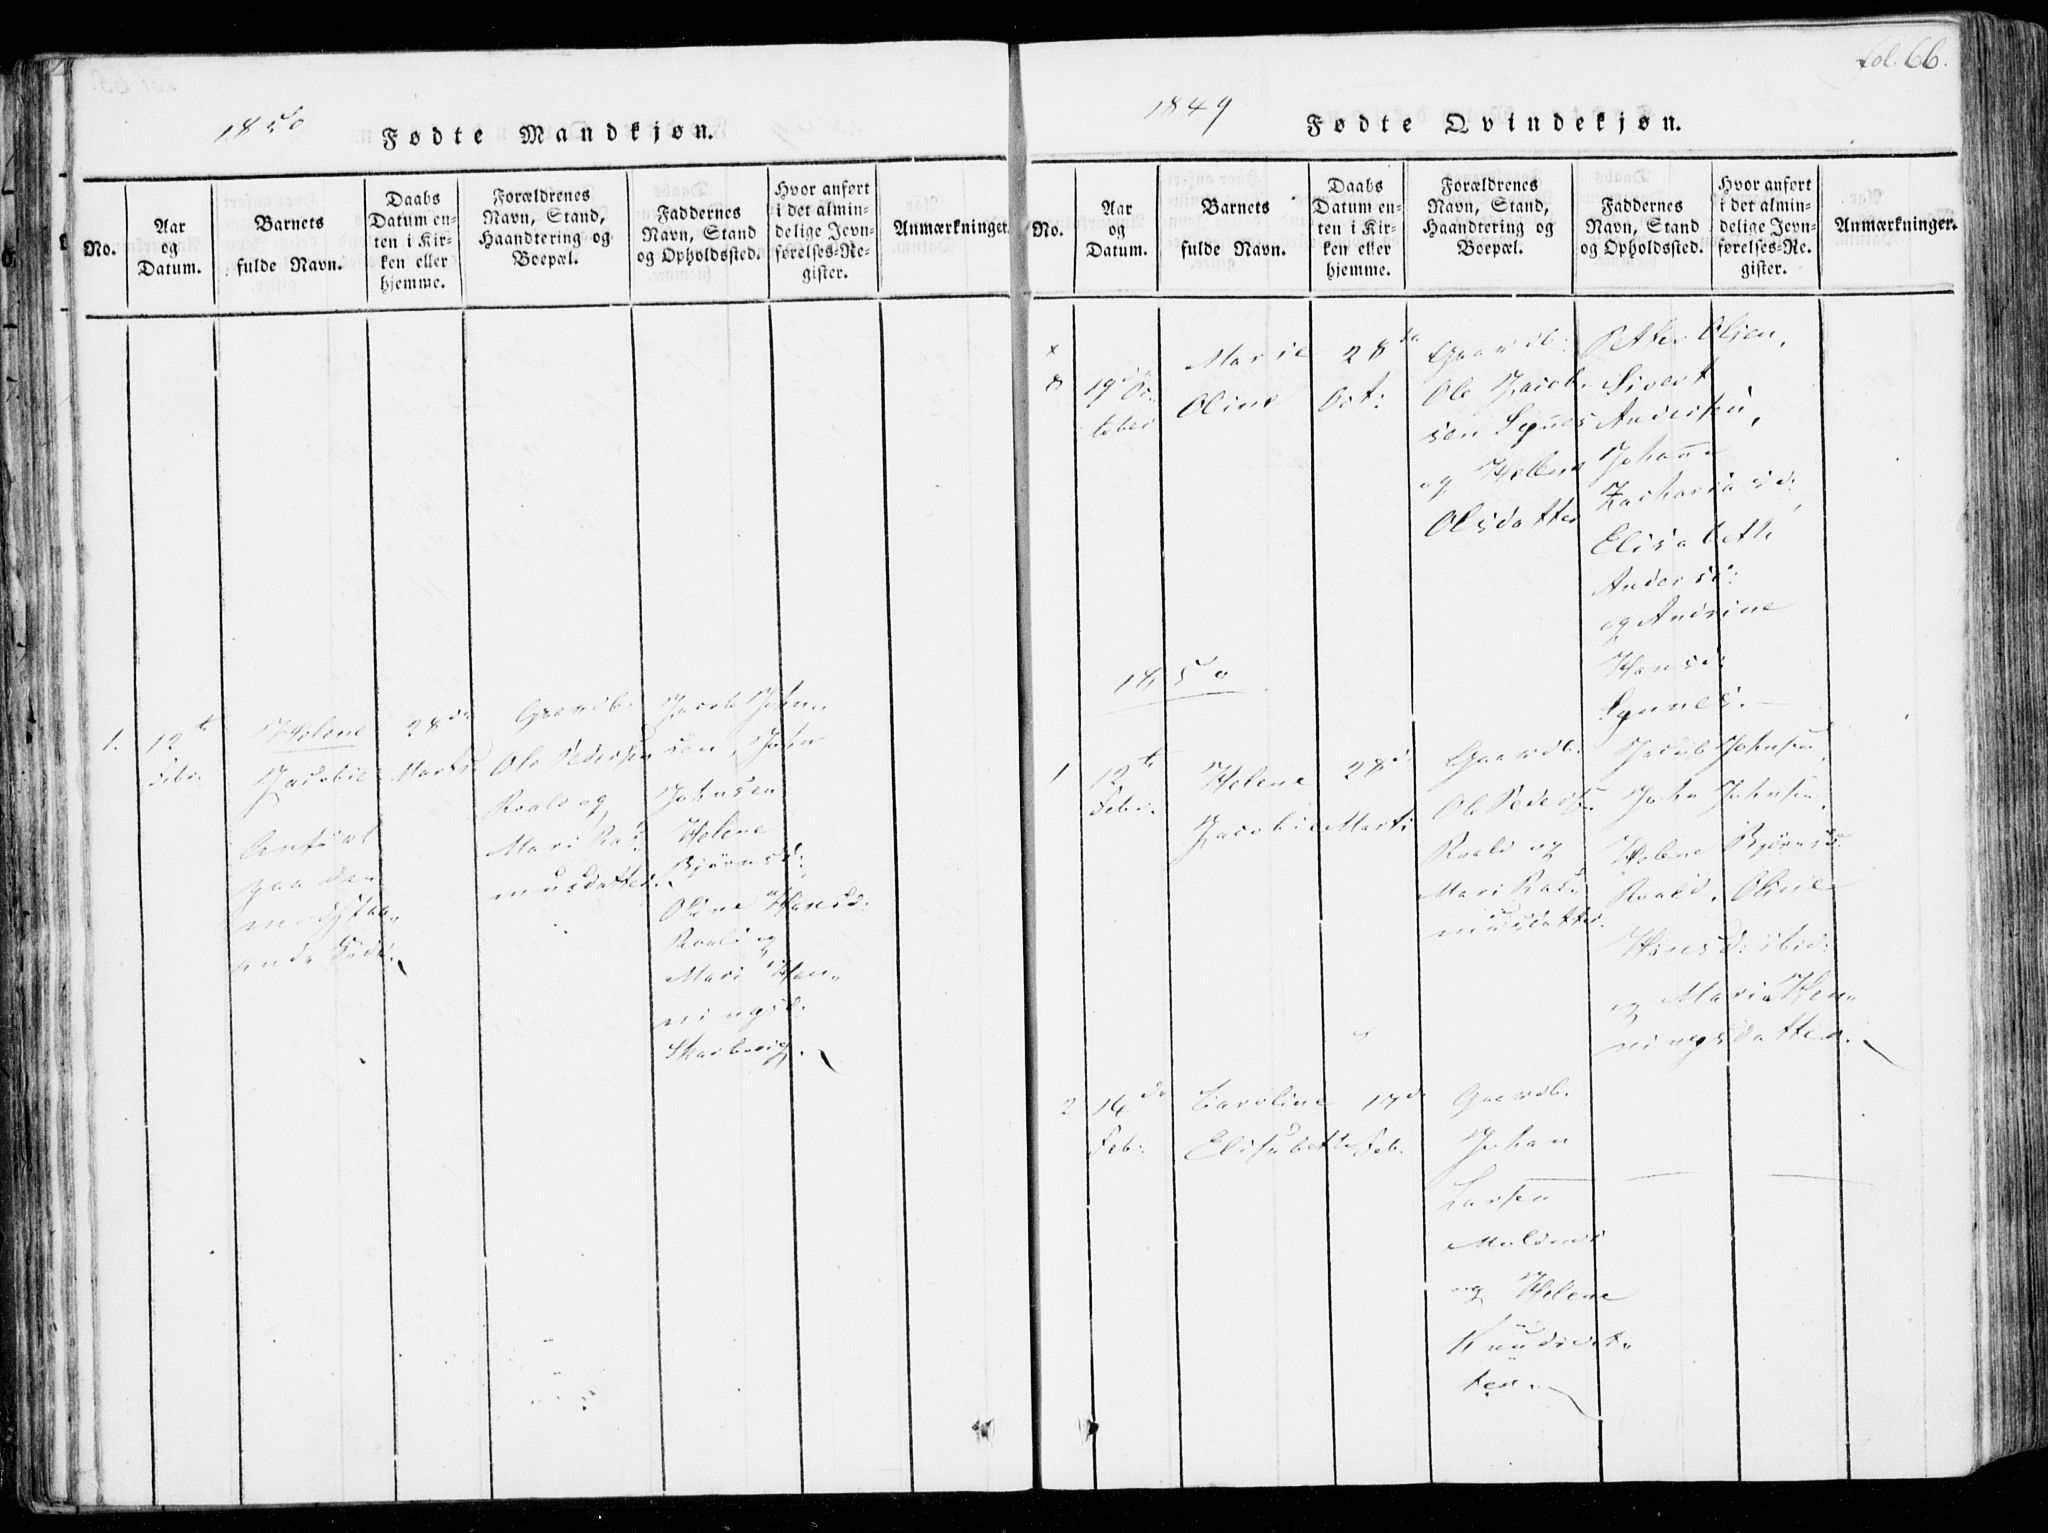 1850
Fødte Mandkjøn.
No.
Aar
og
Datum.
Barnets
fulde Navn.
Daabs
Datum en-
ten i Kir-
ken eller
hjemme.
Forældrenes
Navn, Stand,
Haandtering og
Boepæl.
Faddernes
Navn, Stand
og Opholdssted.
Hvor anført
i det almin-
delige Jevn-
førelses-Re-
gister.
Anmærkninger.
1.
12te
Febr.
Helene
Jacobie
Anført
paa den
modstaa-
ende Side.
28de
Marts
Gaardb.
Ole Pedersen
Roald og
Mari Ras-
musdatter.
Jacob John-
sen, John
Johnsen
Helene
Bjørnsd:
Oline Hansd:
Roald og
Mari Hen-
ningsd.
Skarbevig.
fol. 66.
1849
Fødte Qvindekjøn.
No.
Aar
og
Datum.
Barnets
fulde Navn.
Daabs
Datum en-
ten i Kir-
ken eller
hjemme.
Forældrenes
Navn, Stand,
Haandtering og
Boepæl.
Faddernes
Navn, Stand
og Opholdssted.
Hvor anført
i det almin-
delige Jevn-
førelses-Re-
gister.
Anmærkninger.
8
19de Oc-
tober
Marie
Oline
28de
Oct:
Gaardb:
Ole Jacob-
sen Synes
og Hellene
Olsdatter
Petter Olsen,
Sivert
Andersen,
Johanne
Zachariasd:,
Elisabeth
Andersd:
og Andrine
Hansd:
Synnes.
1850
1
12te
Febr.
Helene
Jacobie
28de
Marts
Gaardb.
Ole Peders.
Roald og
Mari Ras-
musdatter.
Jacob Johnsen,
John Johnsen,
Helene Bjørnsd:
Roald, Oline
Hansd: ibid:
og Maria Hen-
ningsdatter.
2
14de
Feb:
Caroline
Elisabeth
17de
Feb.
Gaardb.
Johan
Larsen
Muldnes
og Helene
Knudsdat-
ter.